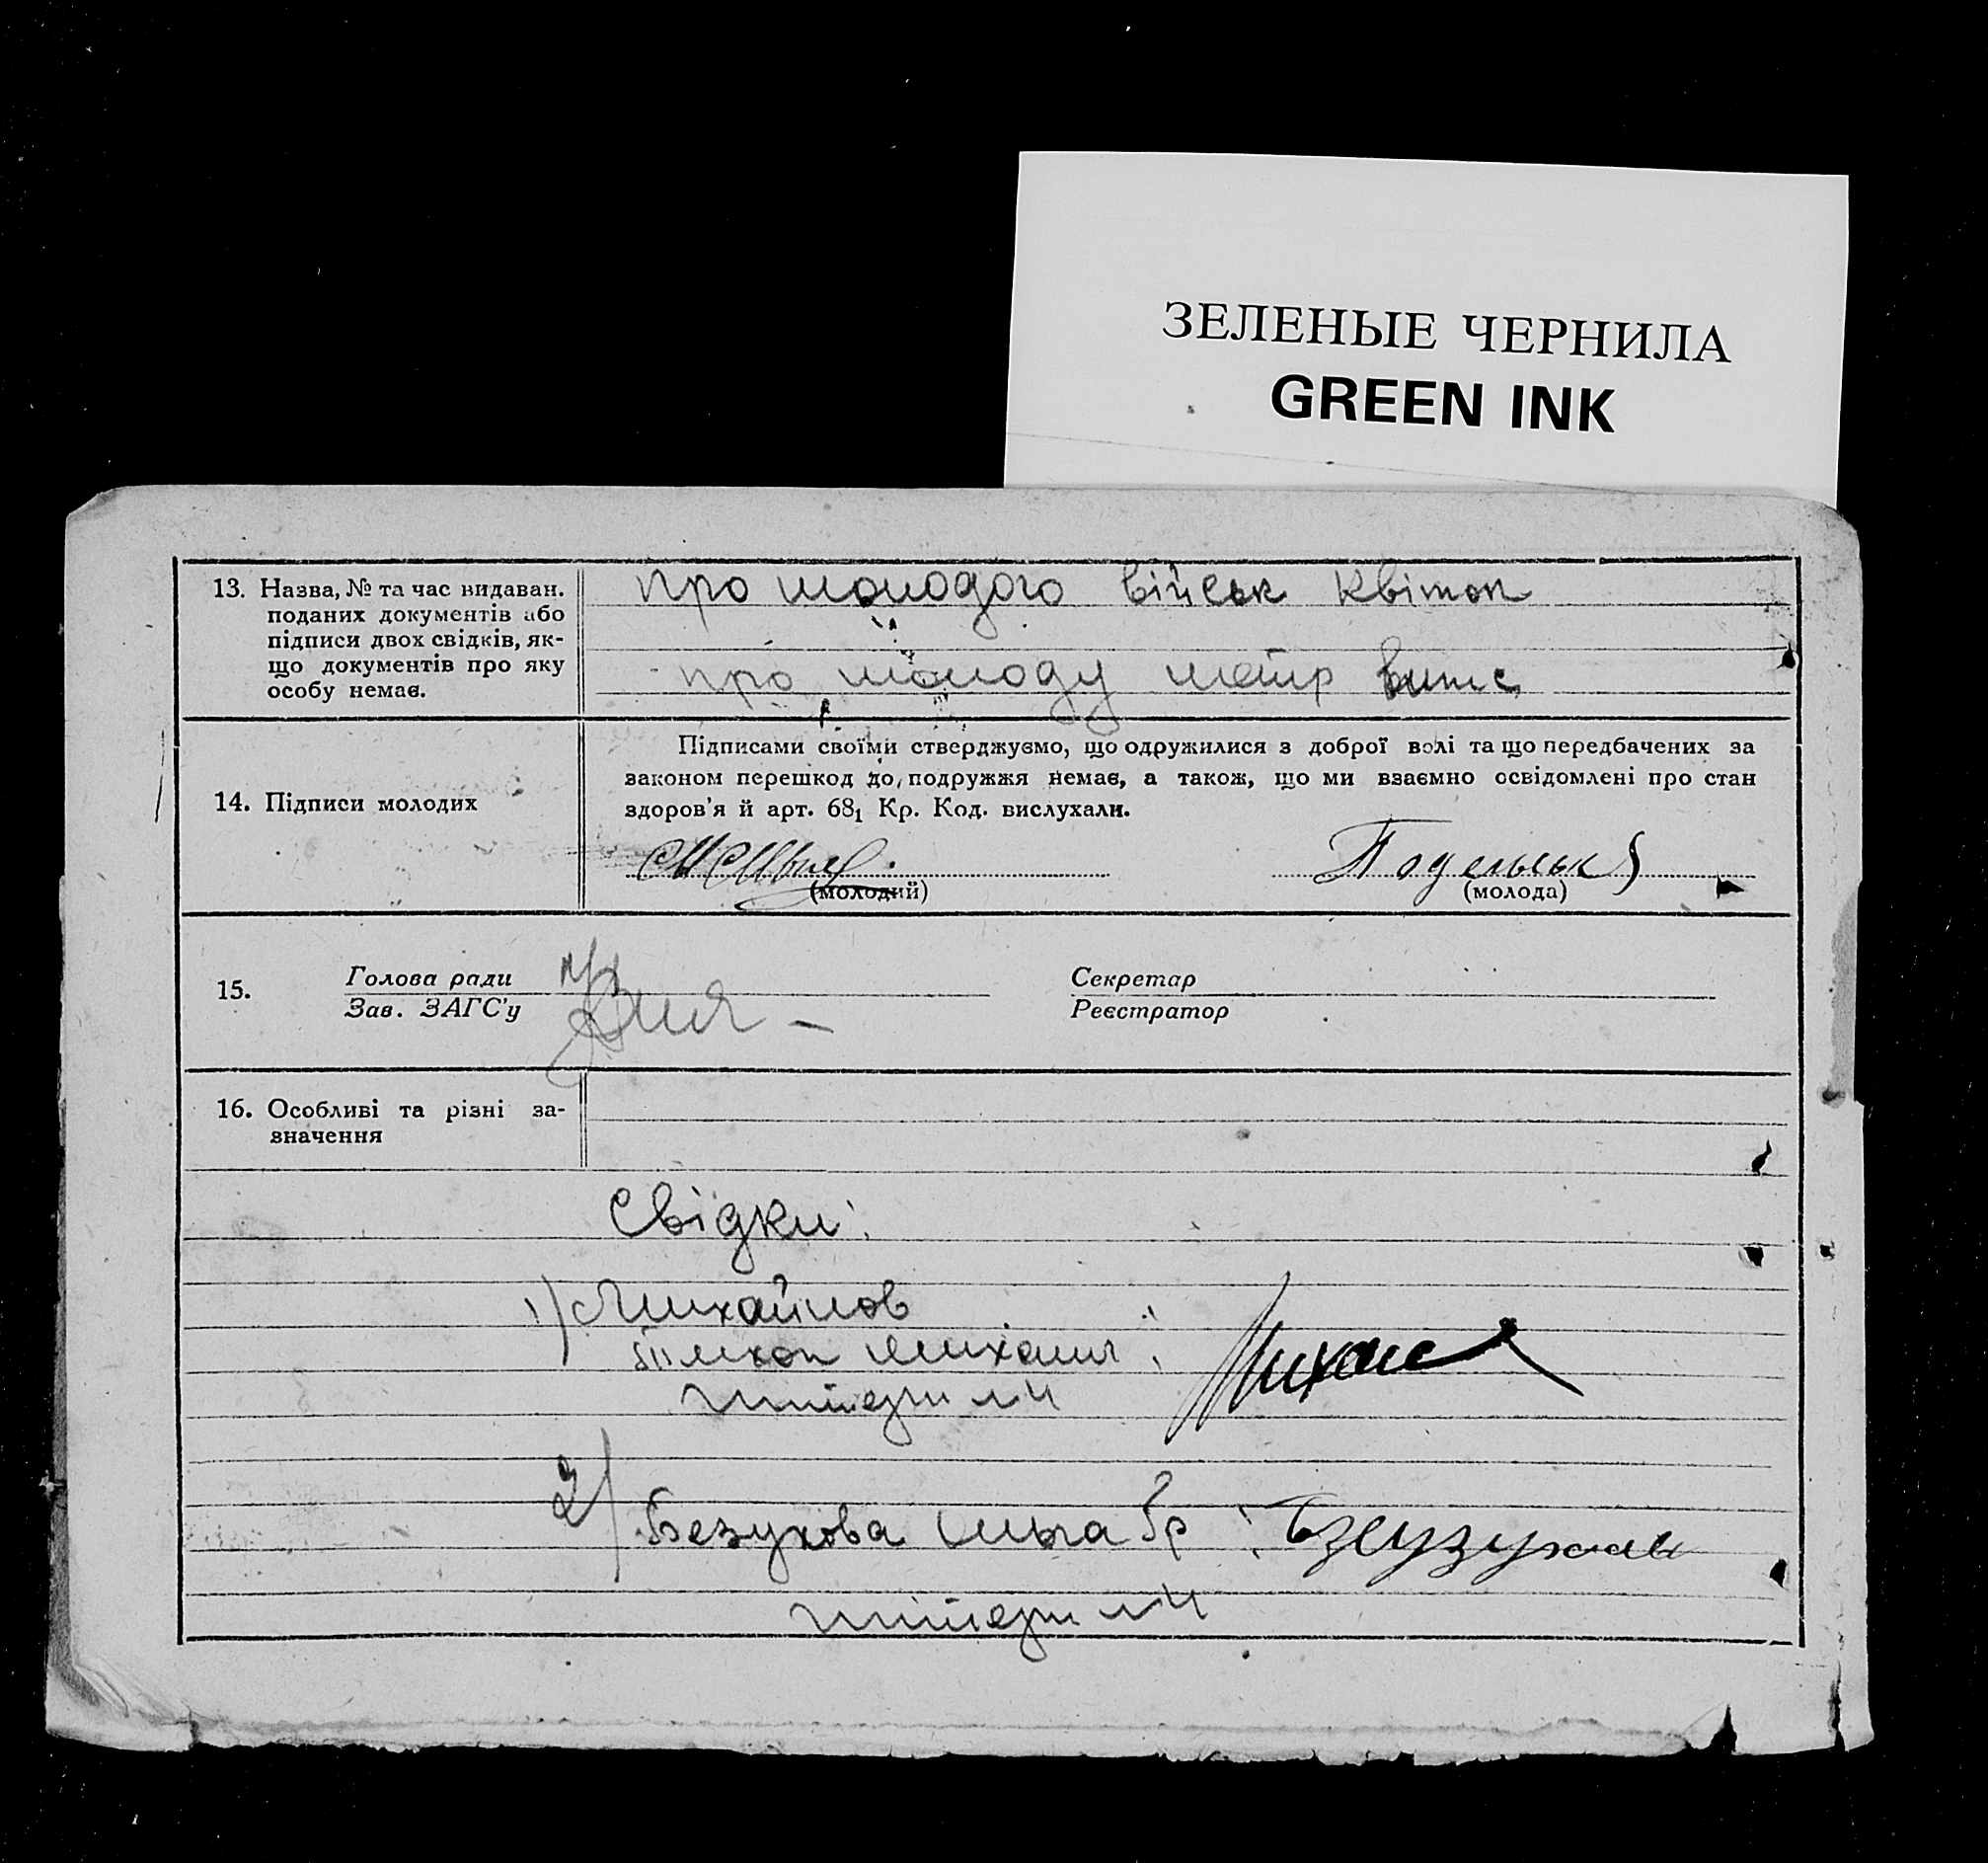 ЗЕЛЕНЫЕ ЧЕРНИЛА
GREEN INK
13. Назва, № та час видаван.
поданих документів або
підписи двох свідків, як-
що документів про яку
особу немає.
про молодого військ квиток
про молоду метр витс
14. Підписи молодих
Підписами своїми стверджуємо, що одружилися з доброї волі та що передбачених за
законом перешкод до подружжя немає, а також, що ми взаємно освідомлені про стан
здоров'я й арт. 68₁ Кр. Код. вислухали.
(молодий)
(молода)
15.
Голова ради
Зав. ЗАГС'у
Секретар
Реєстратор
16. Особливі та різні за-
значення
Свідки:
1) Михайлов
2) Безухова Ольга Гр :